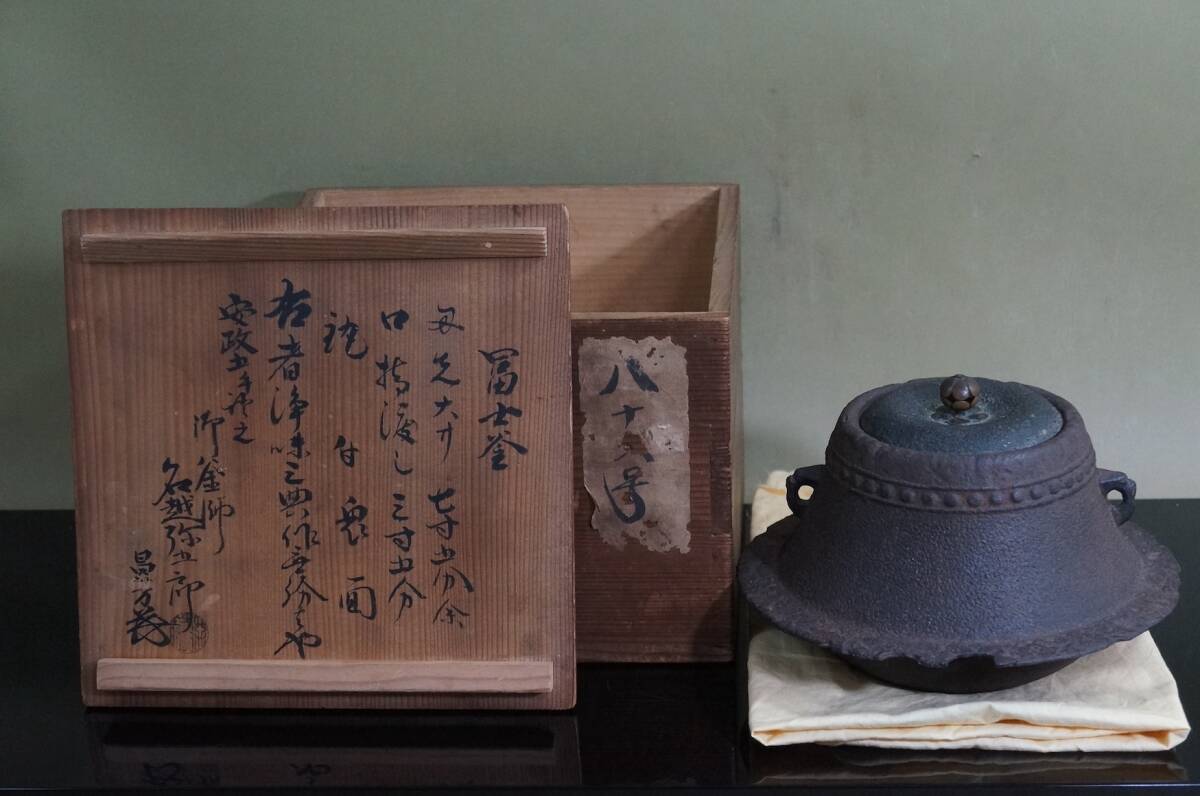 冨士釜
大サ 七寸五分余
口指渡し 三寸五分
鐶付 鬼面
右者浄味之真作無紛もの也
安政
御釜師
名越弥五郎
昌
八十
号